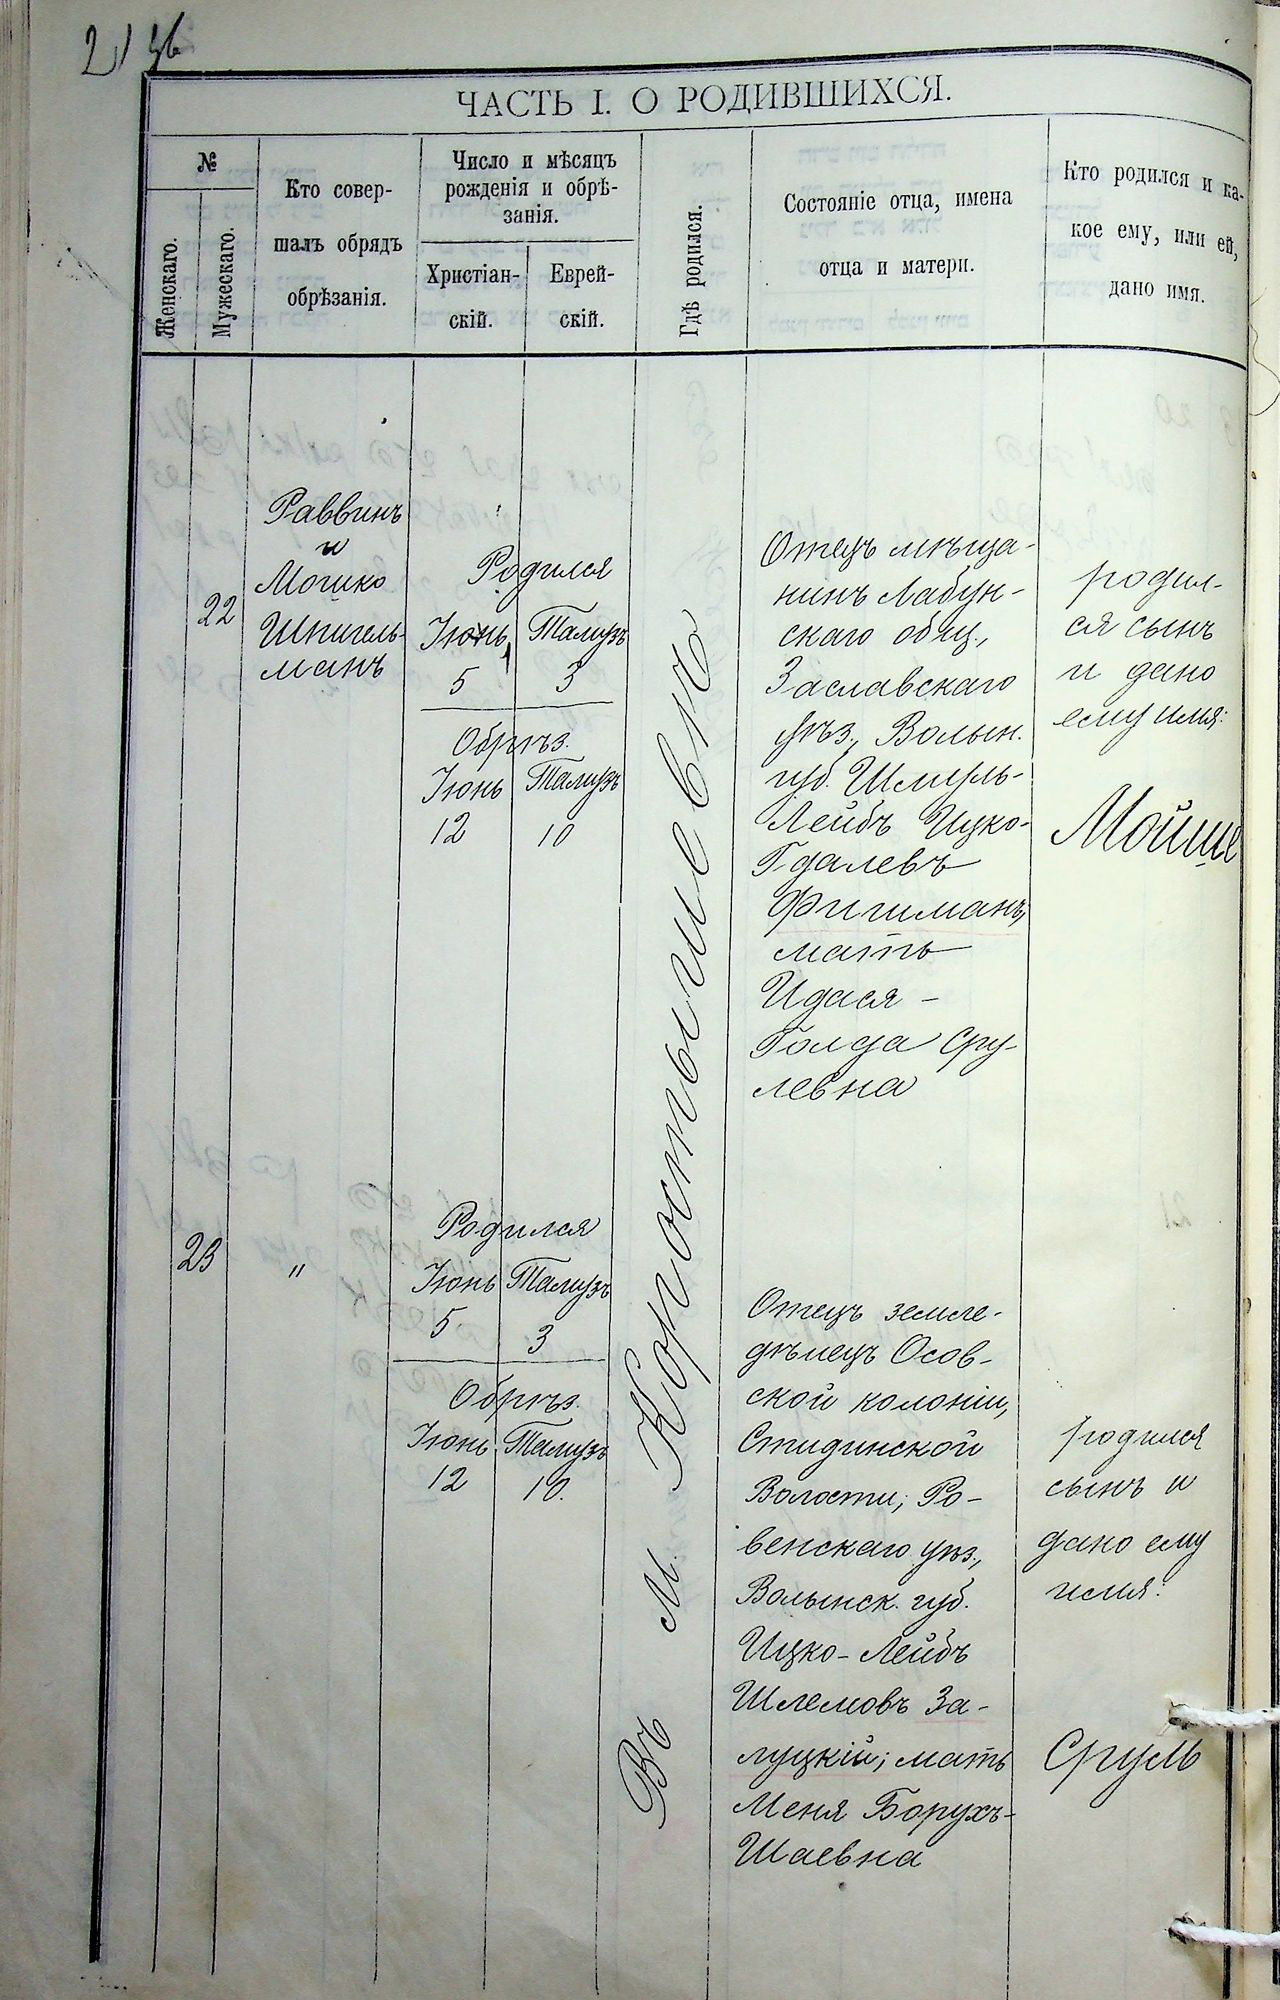 ЧАСТЬ I. О РОДИВШИХСЯ.
№
Женскаго.
Мужескаго.
Кто совер-
шалъ обрядъ
обрѣзанія.
Число и мѣсяцъ
рожденія и обрѣ-
занія.
Христіан-
скій.
Еврей-
скій.
Гдѣ родился.
Состояніе отца, имена
отца и матери.
Кто родился и ка-
кое ему, или ей,
дано имя.
22
Раввинъ
и
Мошко
Шпигель-
манъ
Родился
Іюнь Тамузъ
5 3
Обрѣз.
Іюнь Тамузъ
12 10
Въ м. Коростышевѣ
Отецъ мѣща-
нинъ Лабун-
скаго общ.,
Заславскаго
уѣз., Волын.
губ. Шмуль-
Лейбъ Ицко-
Гдалевъ
Фишманъ,
мать
Идася -
Голда Сру-
левна
родил-
ся сынъ
и дано
ему имя:
Мойше
23
"
Родился
Іюнь Тамузъ
5 3
Обрѣз.
Іюнь Тамузъ
12 10.
Отецъ земле-
дѣлецъ Осов-
ской колоніи,
Стыдинской
Волости; Ро-
венскаго уѣз.,
Волынск. губ.
Ицко-Лейбъ
Шлемовъ За-
луцкій; мать
Меня Борухъ-
Шаевна
родился
сынъ и
дано ему
имя:
Сруль